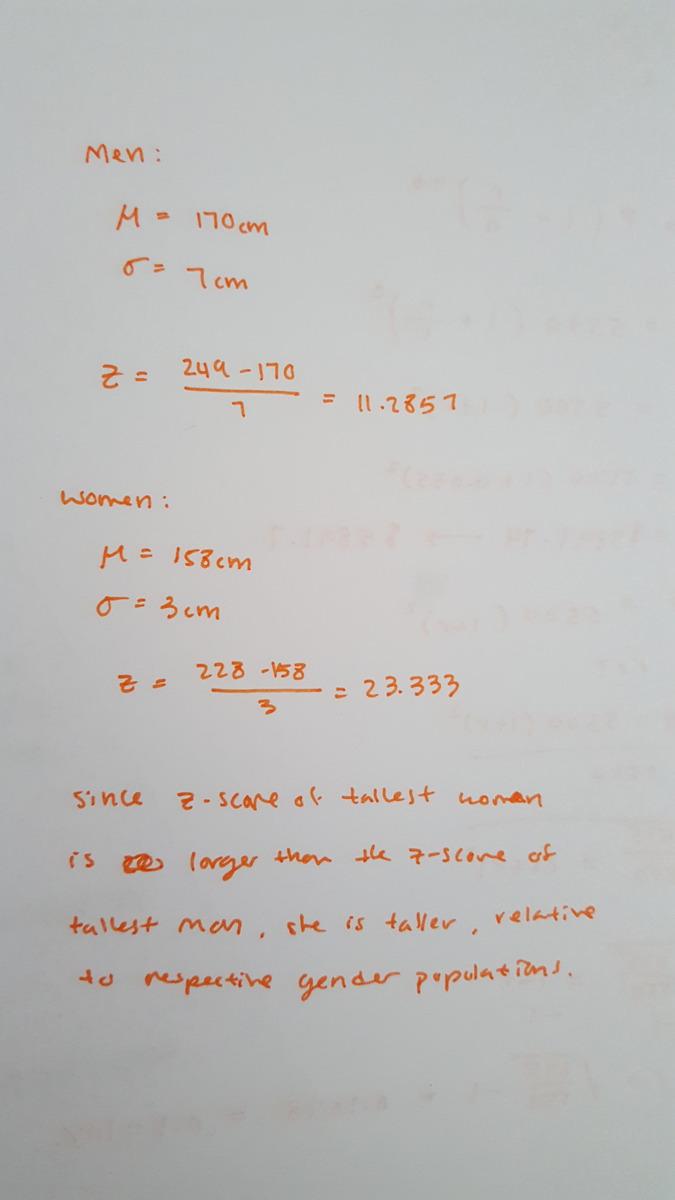 Men:
μ = 170cm
σ = 7cm
z = 249-170 / 7 = 11.2857
women:
μ = 158cm
σ = 3cm
z = 228-158 / 3 = 23.333
since z-score of tallest woman
is larger than the z-score of
tallest man, she is taller, relative
to respective gender populations.